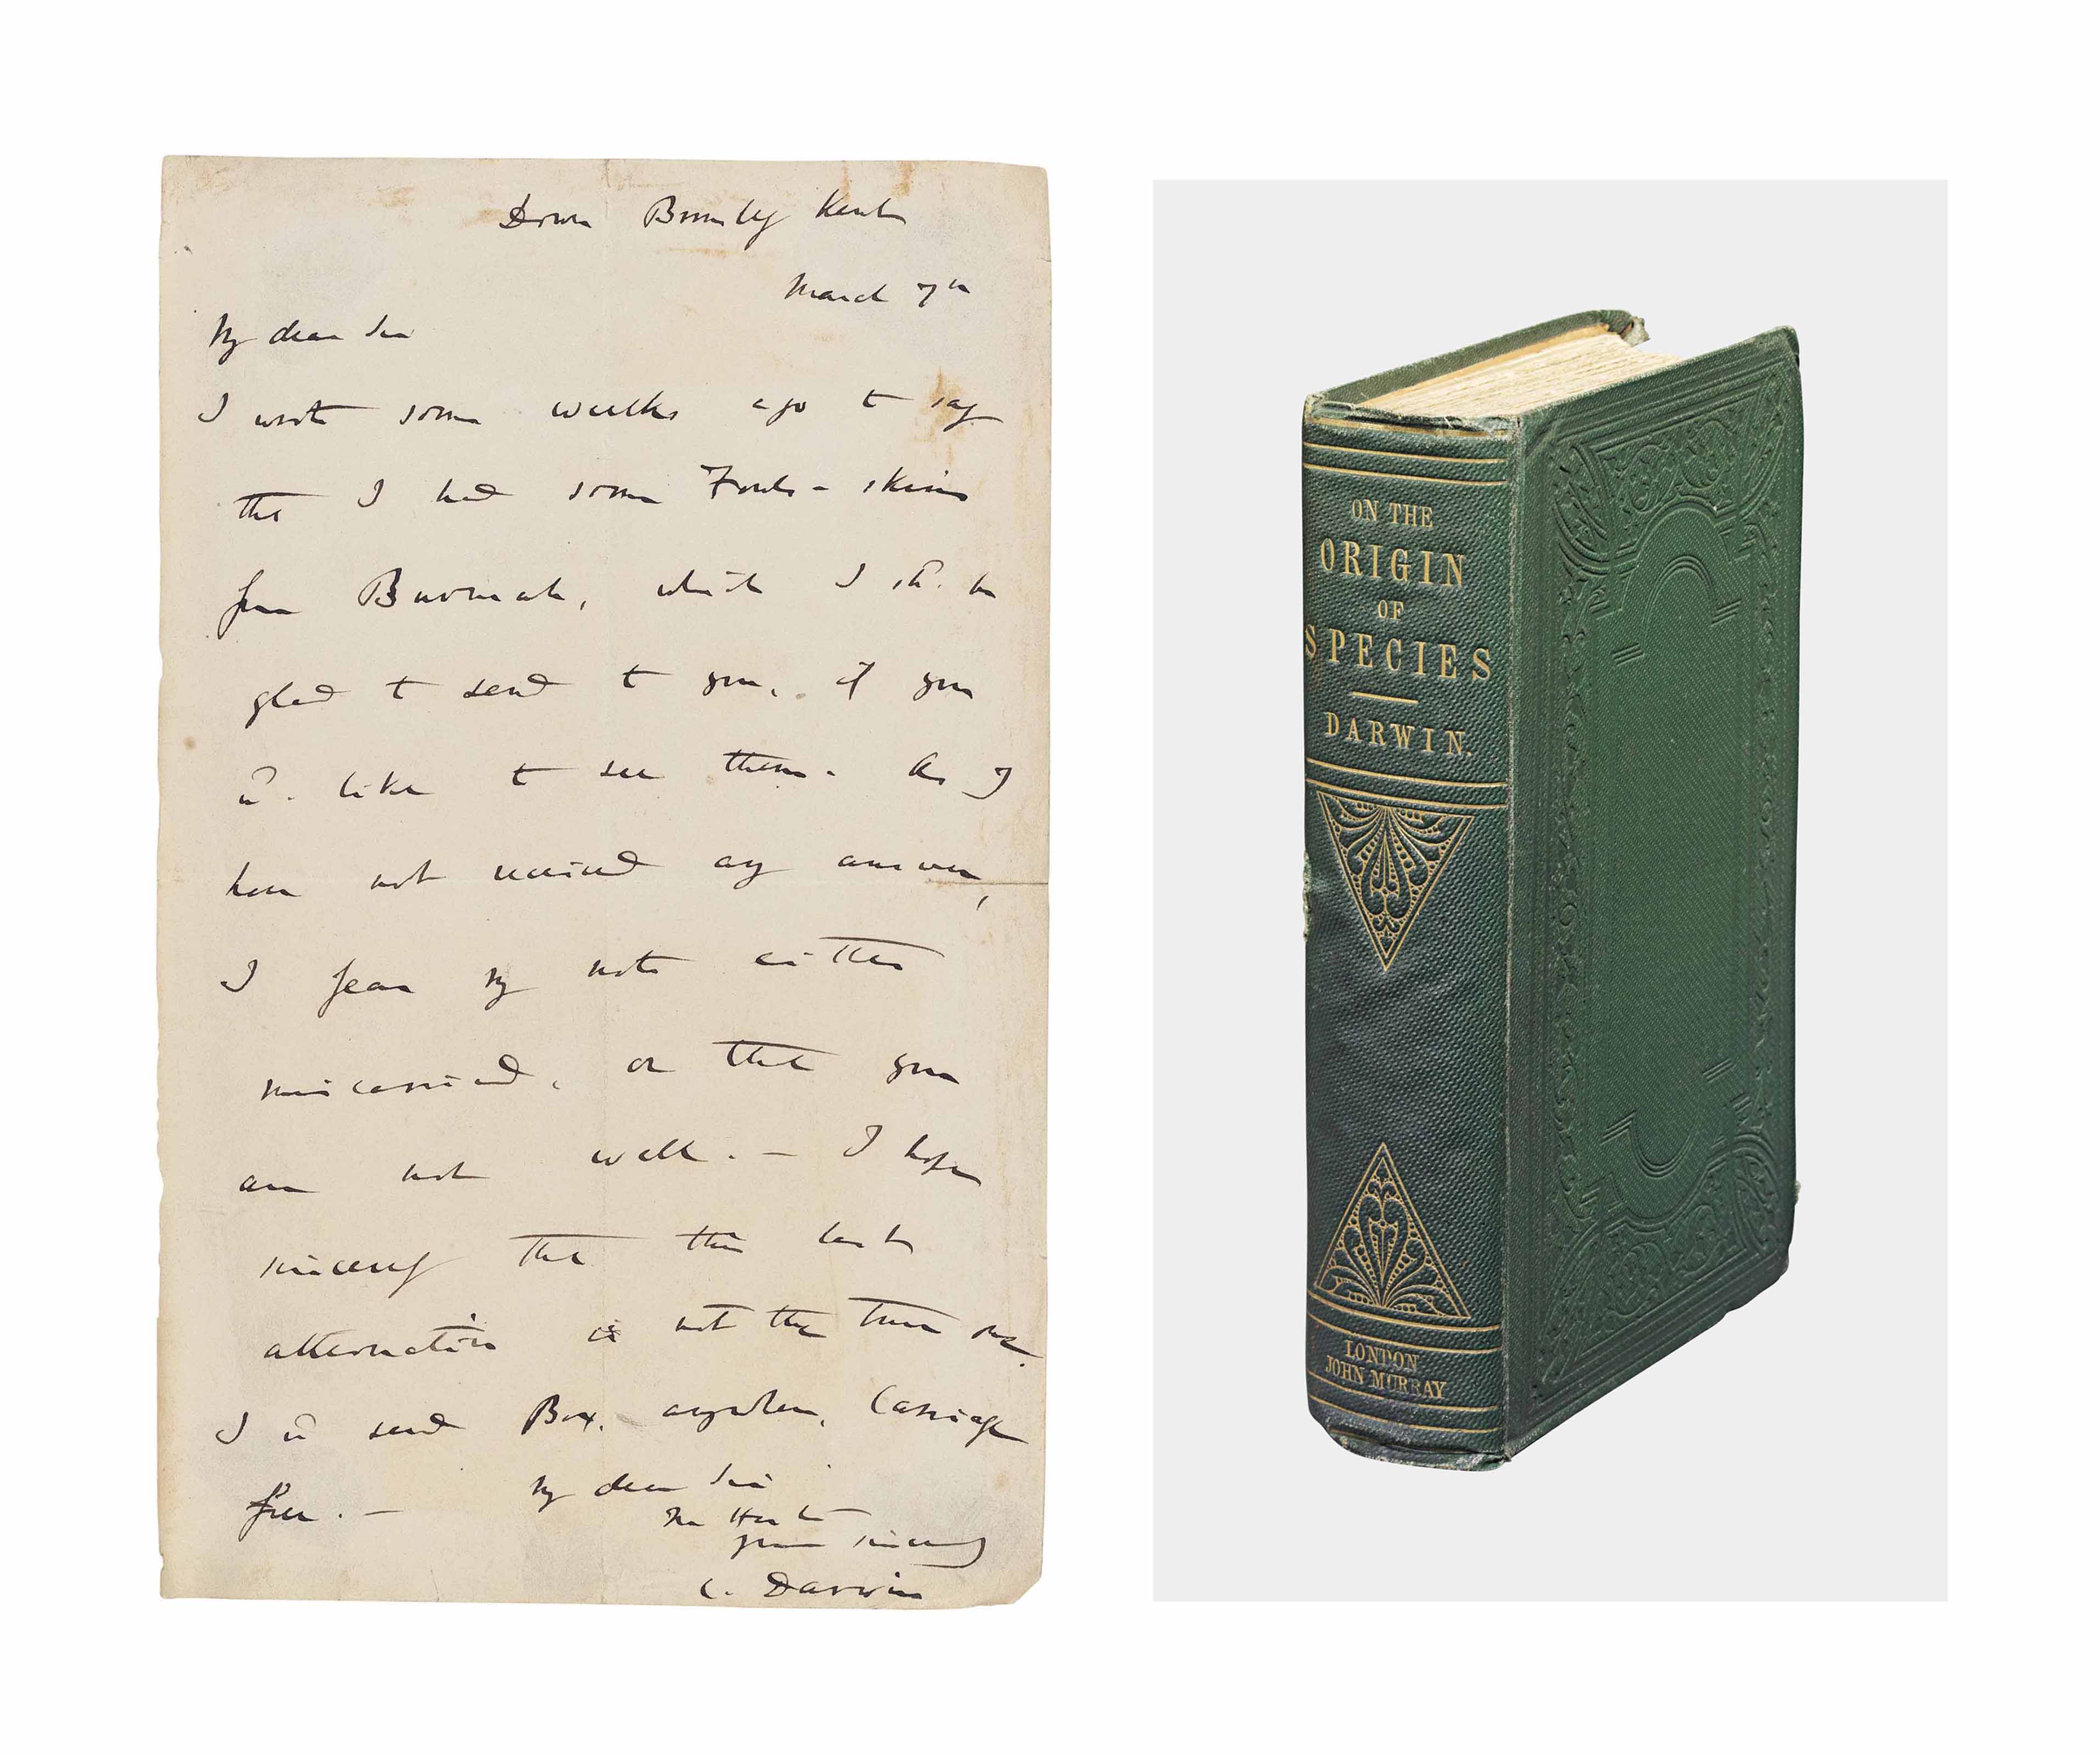 Down Bromley Kent
March 7th
My dear Sir
I wrote some weeks ago to say
that I had some Fowls-skins
from Burmah, which I shd. be
glad to send to you, if you
wd. like to see them. As I
have not received any answer,
I fear my note either
miscarried, or that you
are not well. — I hope
sincerely that this last
alternative is not the true one.
I wd send Box, anywhere, Carriage
free. —
My dear Sir
yours sincerely
C. Darwin
ON THE
ORIGIN
OF
SPECIES
DARWIN.
LONDON
JOHN MURRAY